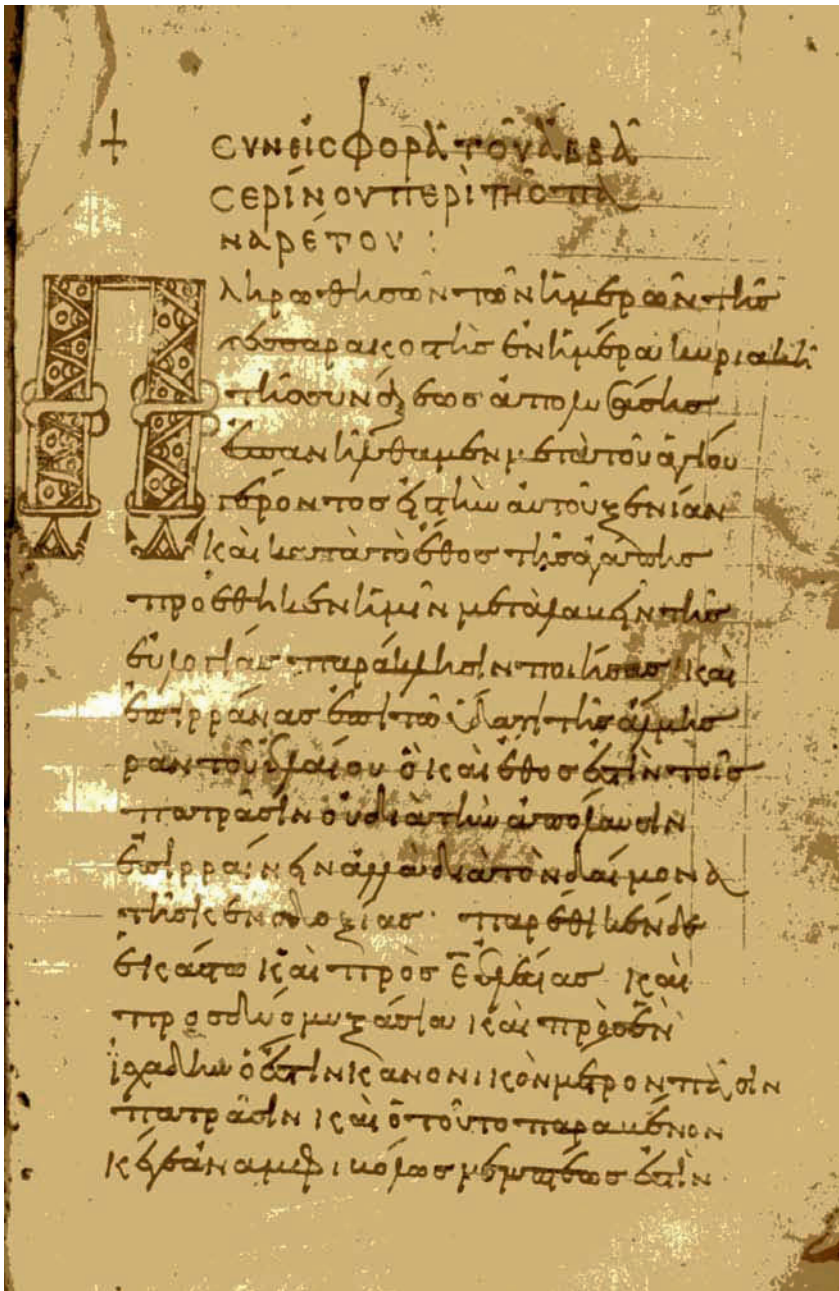 † ΣΥΝΕΙΣΦΟΡᾺ ΤΟῦ ἈΒΒᾶ
ΣΕΡΊΝΟΥ ΠΕΡῚ ΤῆΣ ΠΑ
ΝΑΡΈΤΟΥ :
Πληρωθησῶν τῶν ἡμερῶν τῆς
τεσσαρακοστῆς ἐν ἡμέρα κυριακῆ
τῆς συνάξεως ἀπολυθείσης
ἤλθαμεν μετὰ τοῦ ἁγίου
γέροντος εἰς τὴν αὐτοῦ ξενίαν
καὶ κατὰ τὸ ἔθος τῆς ἀγάπης
προέθηκεν ἡμῖν μετὰ τῆς
εὐλογίας παράκλησιν ποιήσας καὶ
ἐπιρράνας ἐπὶ τῶ ὕδατι τῆς ἅλμης
ραν τοῦ ἐλαίου ὃ καὶ ἔθος ἐστὶν τοῖς
πατράσιν οὐ διὰ τὴν ἀπόλαυσιν
ἐπιρραίνειν ἀλλὰ διὰ τὸν δαίμονα
τῆς κενοδοξίας παρέθηκεν δὲ
ἑκάστω καὶ πρὸς ἐλαίας καὶ
πρὸς δύο μυξάρια καὶ πρὸς ἓν
ἰσχάδιον ὅ ἐστιν κανονικὸν μέτρον πᾶσιν
πατράσιν καὶ ὁ τοῦτο
ἐστὶν